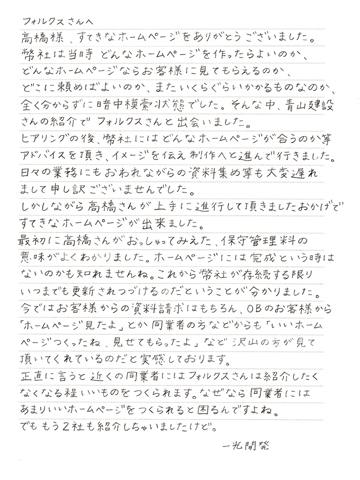 フォルクスさんへ
高橋様、すてきなホームページをありがとうございました。
弊社は当時どんなホームページを作ったらよいのか、
どんなホームページならお客様に見てもらえるのか、
どこに頼めばよいのか、またいくらぐらいかかるものなのか、
全く分からずに暗中模索状態でした。そんな中、青山建設
さんの紹介でフォルクスさんと出会いました。
ヒアリングの後、弊社にはどんなホームページが合うのか等
アドバイスを頂き、イメージを伝え制作へと進んで行きました。
日々の業務にもおわれながらの資料集め等も大変遅れ
まして申し訳ございませんでした。
しかしながら高橋さんが上手に進行して頂きましたおかげで
すてきなホームページが出来ました。
最初に高橋さんがおっしゃってみえた、保守管理料の
意味がよくわかりました。ホームページには完成という時は
ないのかも知れませんね。これから弊社が存続する限り
いつまでも更新されつづけるのだということが分かりました。
今ではお客様からの資料請求はもちろん、OBのお客様から
「ホームページ見たよ」とか同業者の方などからも「いいホーム
ページつくったね、見せてもらったよ」など沢山の方が見て
頂いてくれているのだと実感しております。
正直に言うと近くの同業者にはフォルクスさんは紹介したく
なくなる程いいものをつくられます。なぜなら同業者には
あまりいいホームページをつくられると困るんですよね。
でももう2社も紹介しちゃいましたけど。
一光開発